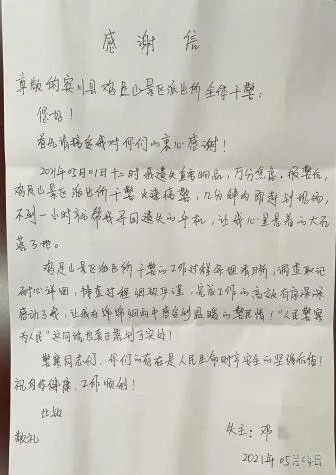 感谢信
尊敬的宾川县鸡足山景区派出所全体干警：
您好！
首先请接受我对你们的衷心感谢！
2021年05月01日十二时我遗失贵重物品，万分焦虑。报警后，
鸡足山景区派出所干警火速接警，几分钟内即赶到现场，
不到一小时就帮我寻回遗失的手机，让我心里悬着的大石
落了地。
鸡足山景区派出所干警的工作过程条理清晰，调查取证
耐心详细，侦查过程细致严谨，完成工作的高效有序深深
感动了我，让我在绵绵细雨中感受到温暖的警民情！“人民警察
为人民”这句话也真正落到了实处！
警察同志们，你们的存在是人民生命财产安全的坚强后盾！
祝身体健康，工作顺利！
此致
敬礼
失主：邓
2021年05月04日